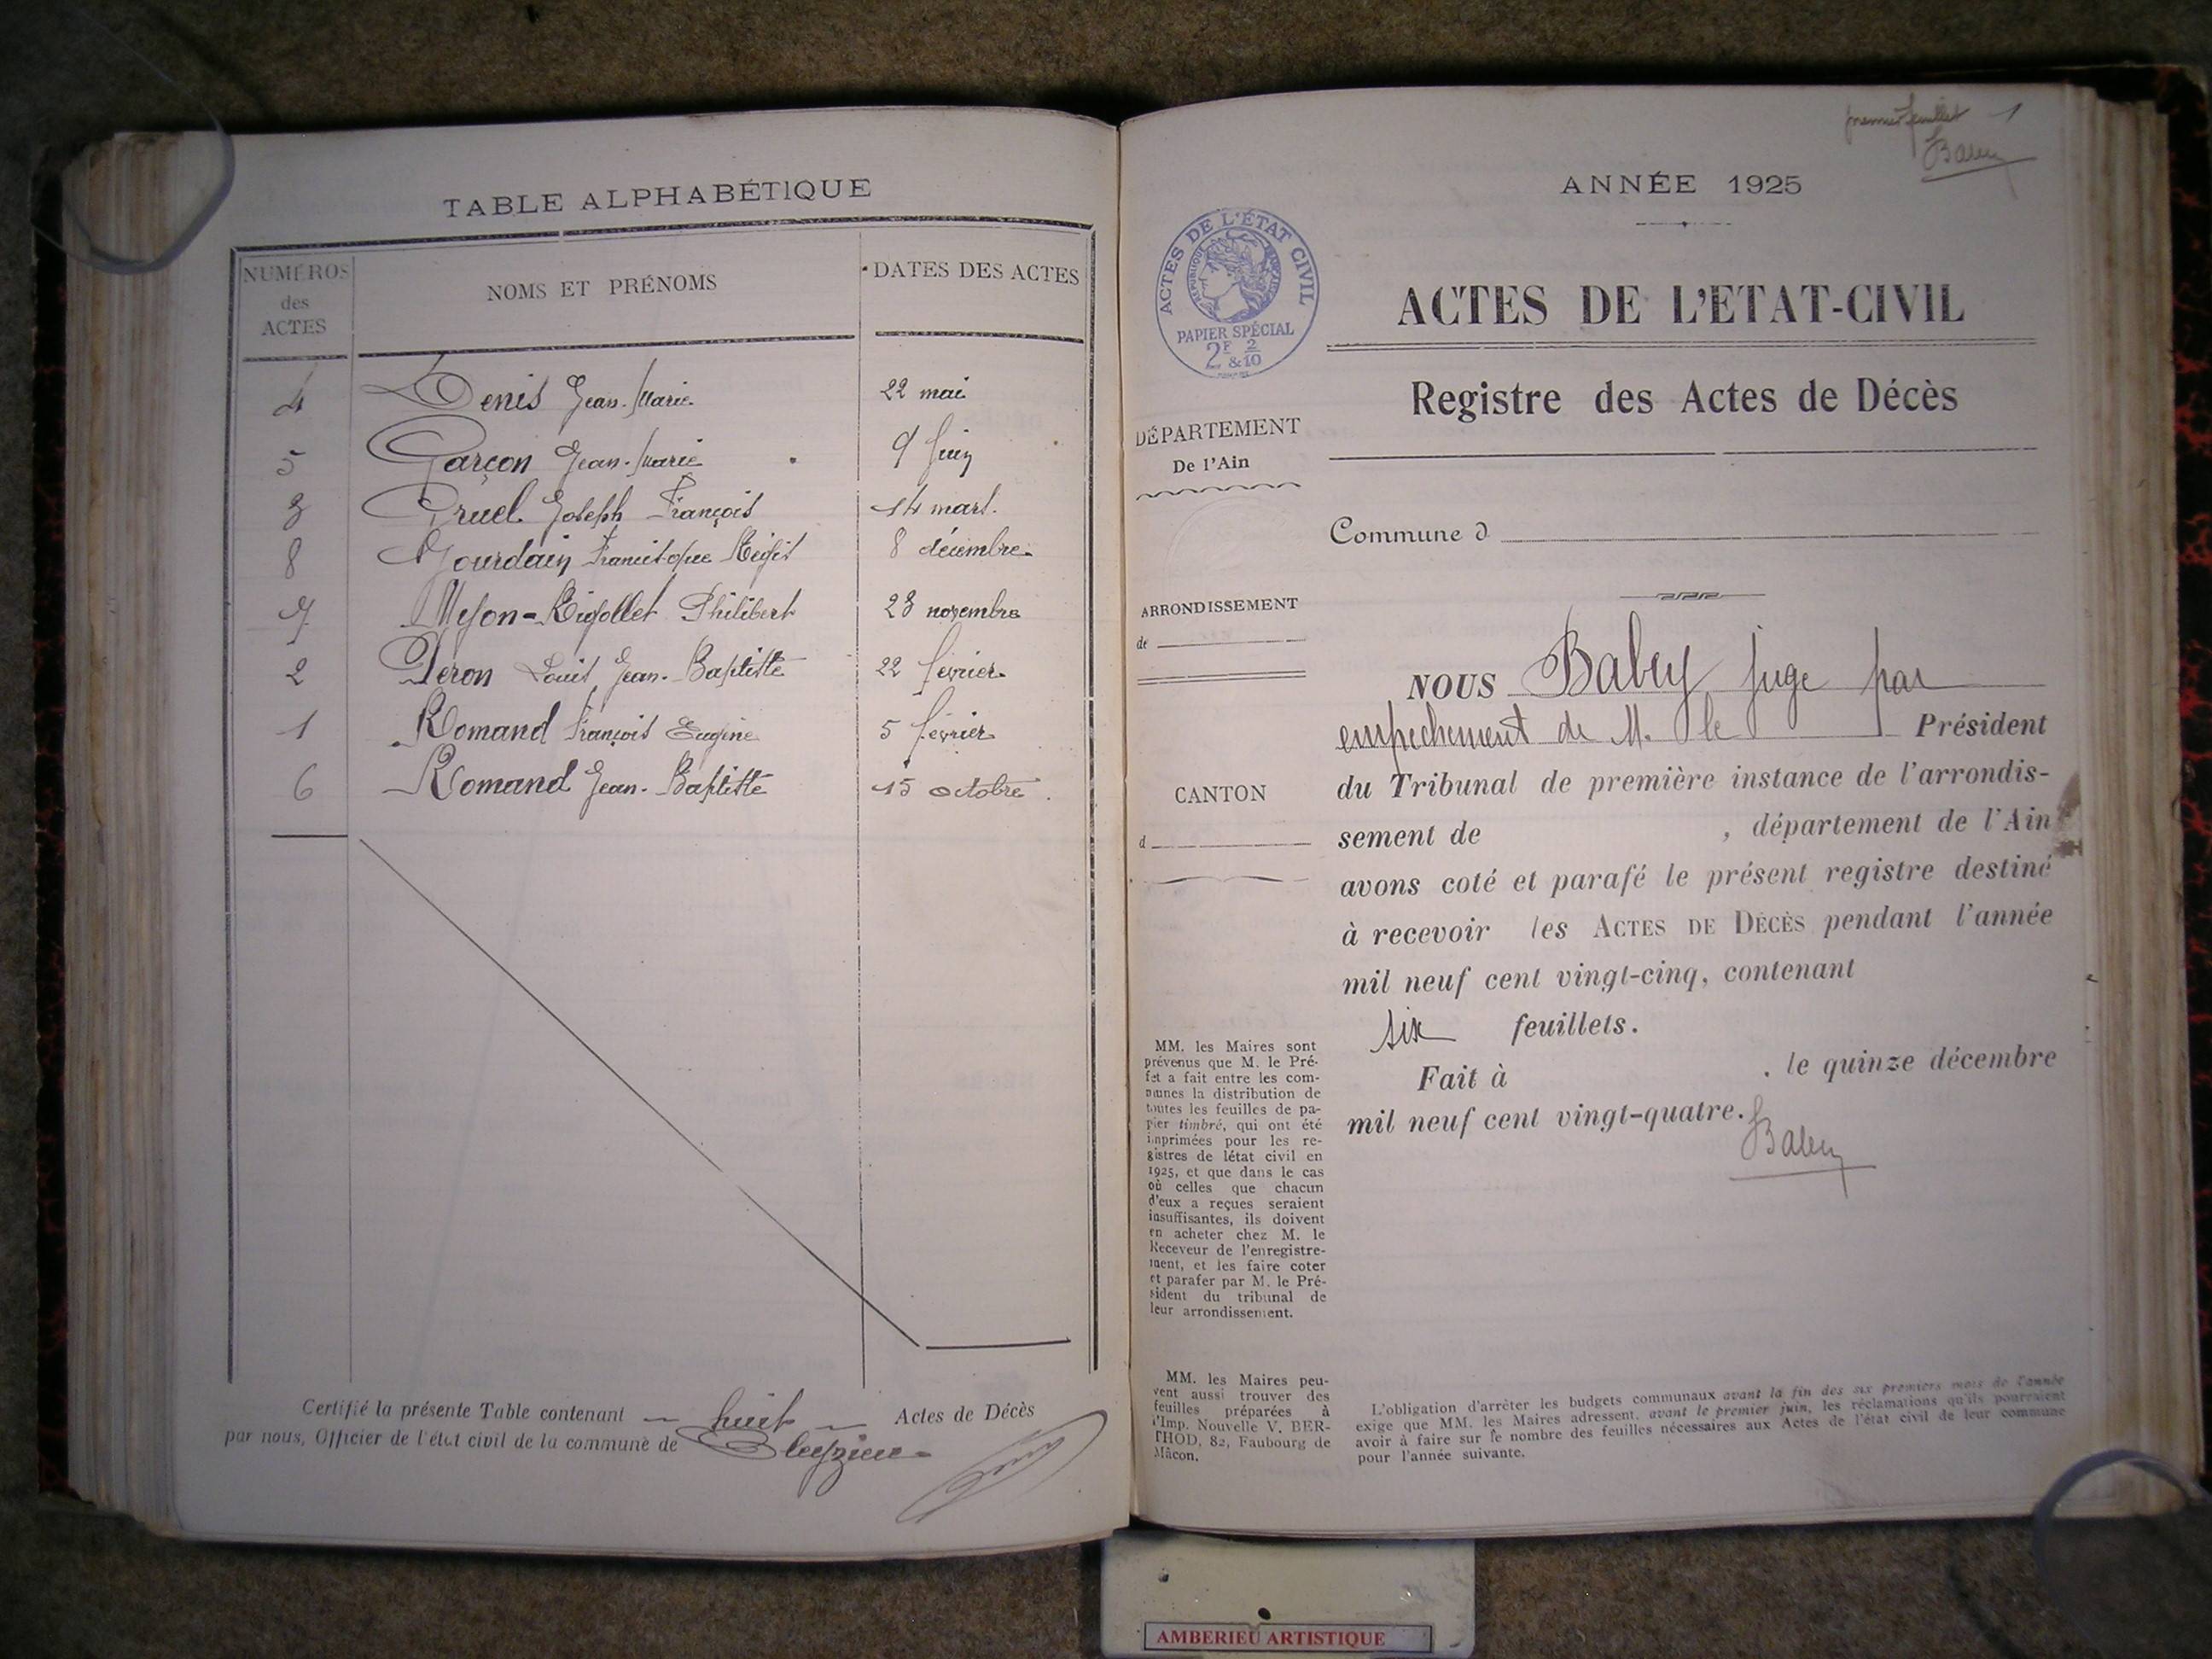 TABLE ALPHABÉTIQUE
NUMÉROS des ACTES
NOMS ET PRÉNOMS
DATES DES ACTES
4 Denis Jean-Marie 22 mai
5 Garçon Jean-Marie 9 Juin
3 Gruel Joseph François 14 mars.
8 Jourdain Francisque Régis 8 décembre
7 Philibert 23 novembre
2 Péron Louis Jean-Baptiste 22 février
1 Romand François Eugène 5 février
6 Romand Jean-Baptiste 15 octobre
Certifié la présente Table contenant — huit — Actes de Décès
par nous, Officier de l'état civil de la commune de Cleyzieu
premier feuillet 1
Babey
ANNÉE 1925
ACTES DE L'ÉTAT CIVIL
RÉPUBLIQUE FRANÇAISE
PAPIER SPÉCIAL
2F & 2/10
ACTES DE L'ETAT-CIVIL
Registre des Actes de Décès
DÉPARTEMENT
De l'Ain
Commune d
ARRONDISSEMENT
de
CANTON
d
NOUS Babey juge par
empechement de M. le Président
du Tribunal de première instance de l'arrondis-
sement de , département de l'Ain
avons coté et parafé le présent registre destiné
à recevoir les ACTES DE DÉCÈS pendant l'année
mil neuf cent vingt-cinq, contenant
six feuillets.
Fait à , le quinze décembre
mil neuf cent vingt-quatre.
Babey
MM. les Maires sont
prévenus que M. le Pré-
fet a fait entre les com-
munes la distribution de
toutes les feuilles de pa-
pier timbré, qui ont été
imprimées pour les re-
gistres de létat civil en
1925, et que dans le cas
où celles que chacun
d'eux a reçues seraient
insuffisantes, ils doivent
en acheter chez M. le
Receveur de l'enregistre-
ment, et les faire coter
et parafer par M. le Pré-
sident du tribunal de
leur arrondissement.
MM. les Maires peu-
vent aussi trouver des
feuilles préparées à
l'Imp. Nouvelle V. BER-
THOD, 82, Faubourg de
Mâcon.
L'obligation d'arrêter les budgets communaux avant la fin des six premiers mois de l'année
exige que MM. les Maires adressent, avant le premier juin, les réclamations qu'ils pourraient
avoir à faire sur le nombre des feuilles nécessaires aux Actes de l'état civil de leur commune
pour l'année suivante.
AMBERIEU ARTISTIQUE